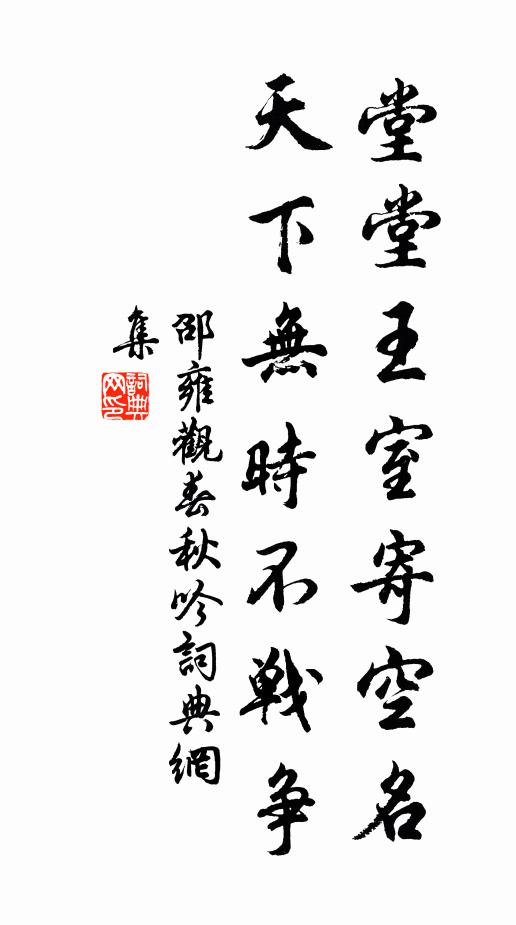 堂堂王室寄空名
天下無時不戰争
邵雍觀春秋吟詞典網
集
詞典
网印